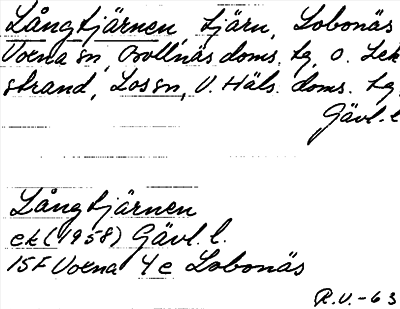 Långtjärnen, tjärn, Lobonäs
Voxna sn, Bollnäs doms. tg, o. Lek
strand, Los sn, V. Häls. doms. tg,
Gävl. l
Långtjärnen
ek (1958) Gävl. l.
15F Voxna 4e Lobonäs
R.V. - 63